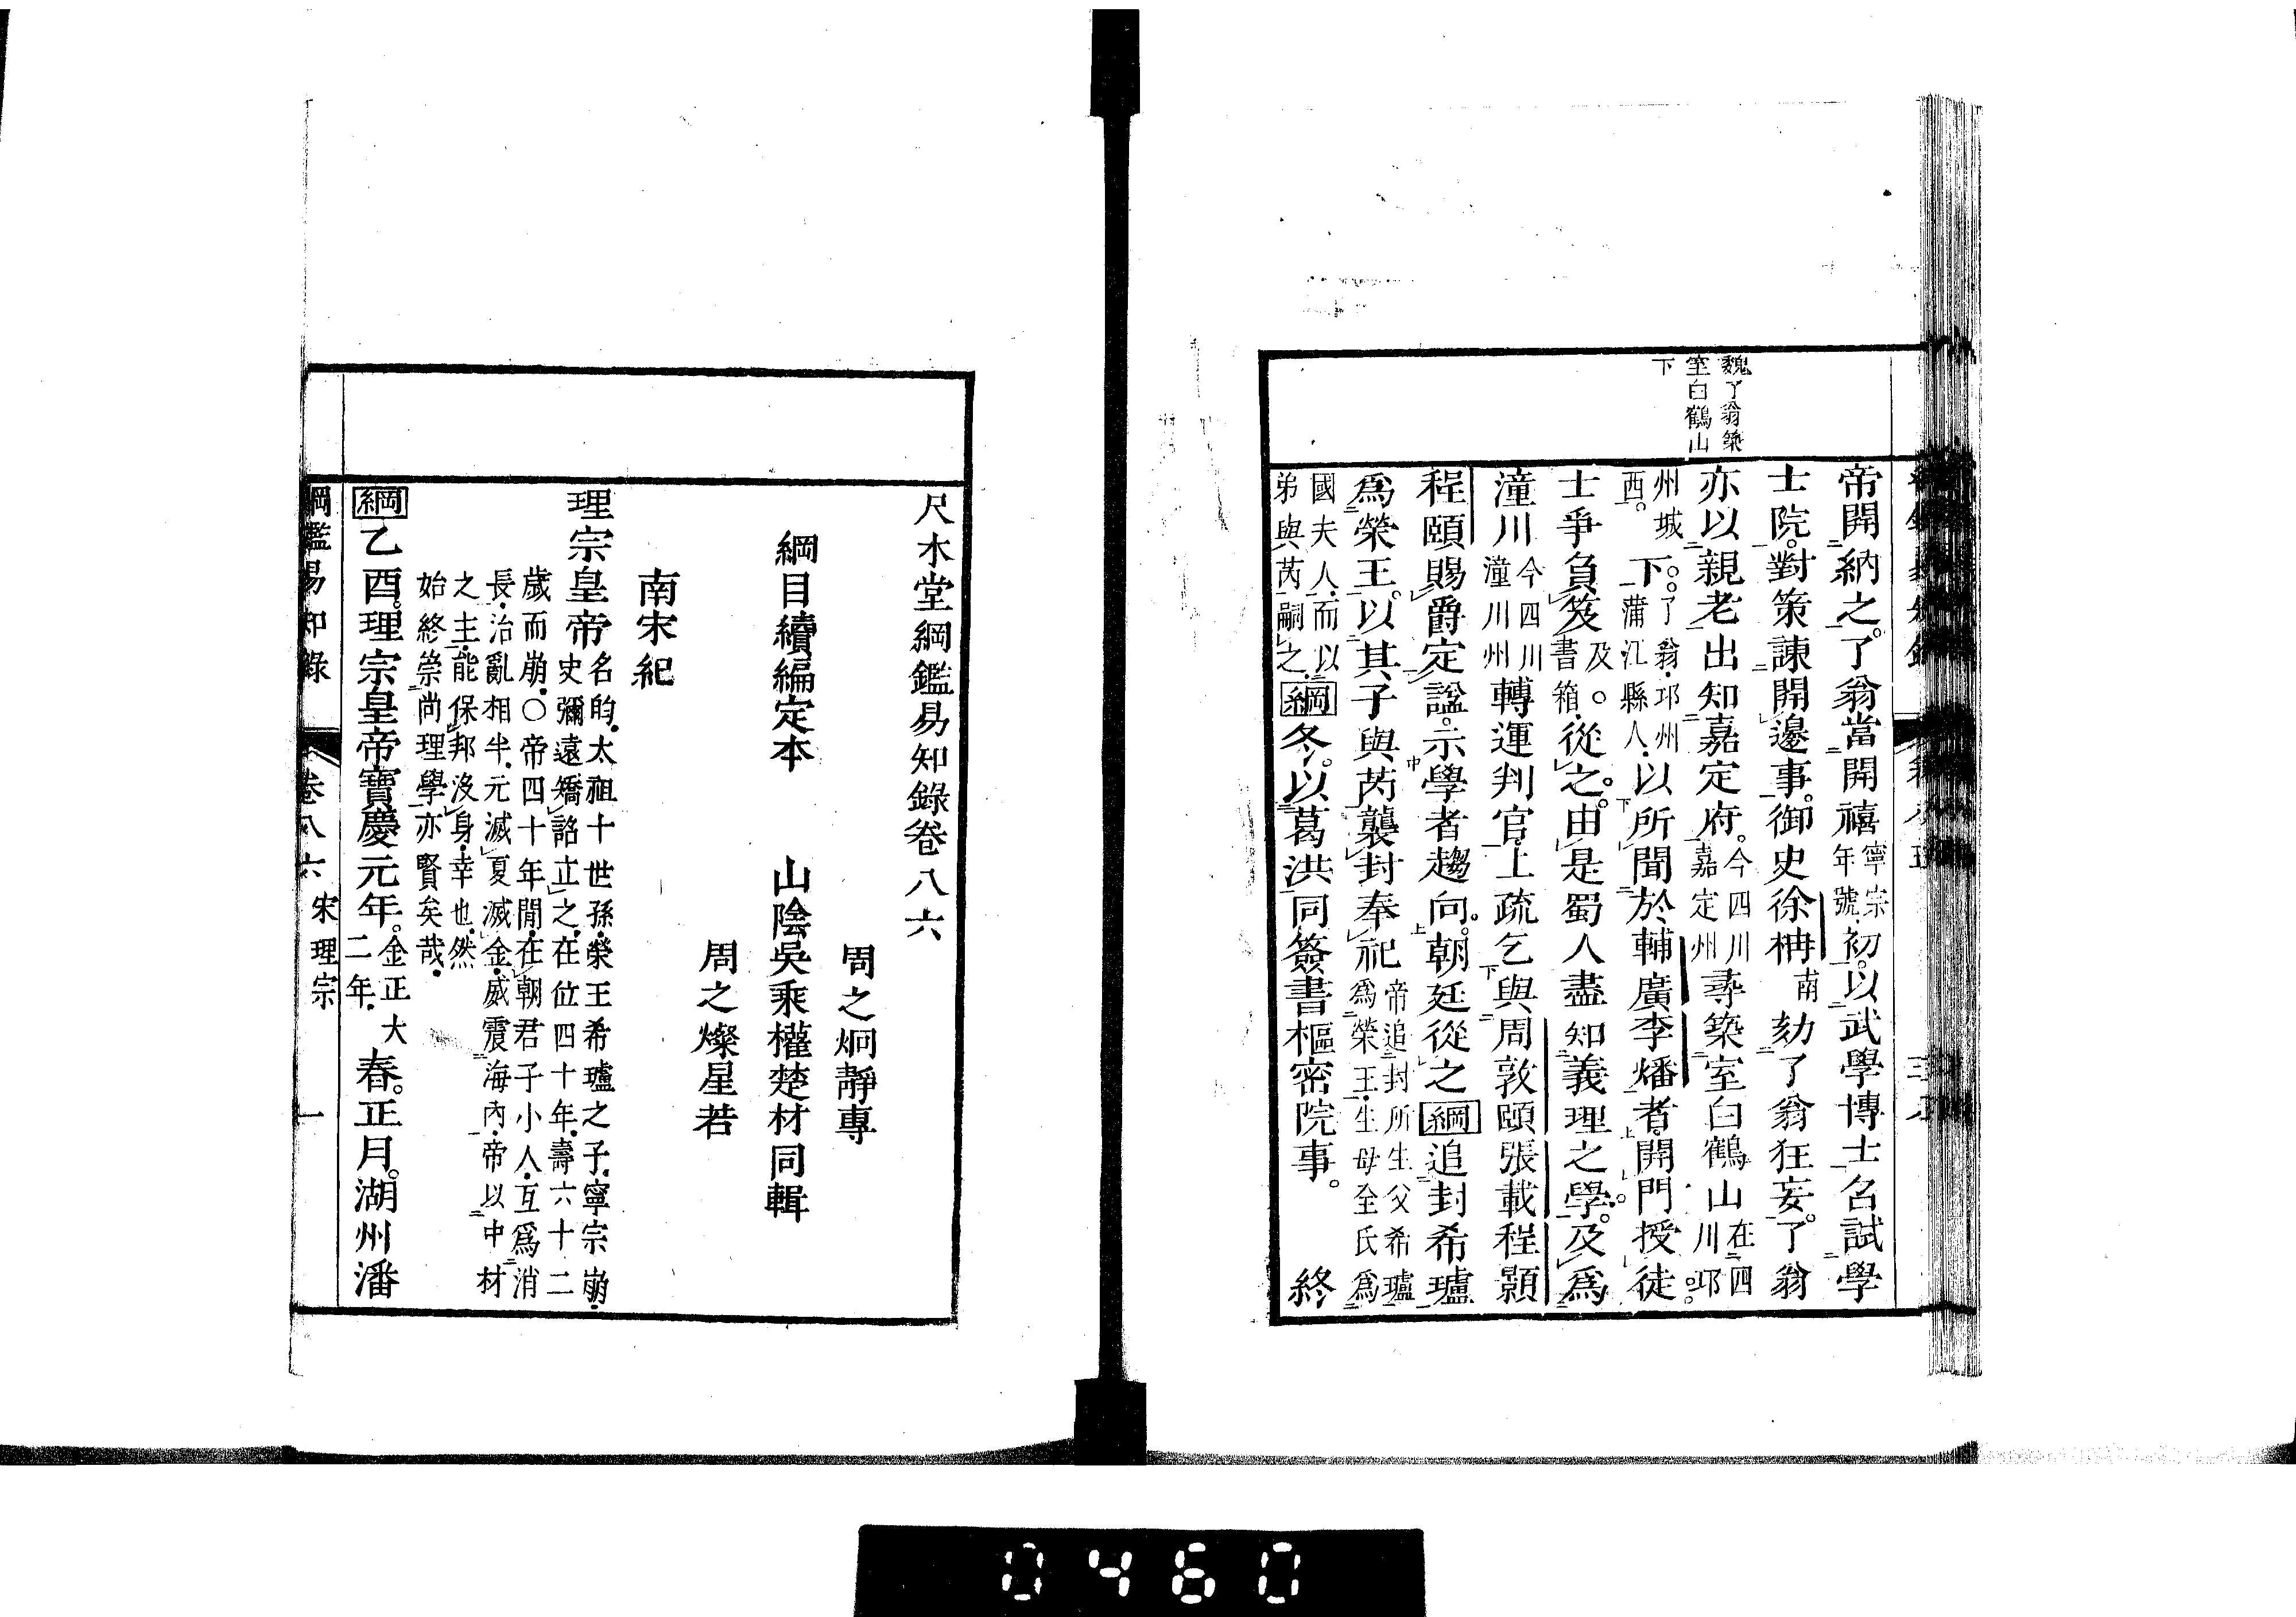 魏了翁築
室白鶴山
下
帝開納之。了翁當開禧寧宗年號。初。以武學博士召試學
士院。對策諫開邊事。御史徐柟南劾了翁狂妄。了翁
亦以親老出知嘉定府。今四川嘉定州尋築室白鶴山在四川邛
州城西。下。了翁。邛州蒲江縣人。以所聞於輔廣李燔者。開門授徒。
士爭負笈及。書箱。從之。由是蜀人盡知義理之學。及爲
潼川今四川潼川州轉運判官。上疏乞與周敦頤張載程顥
程頤賜爵定諡。示學者趨向。朝廷從之綱追封希瓐
爲榮王。以其子與芮襲封奉祀帝追封所生父希瓐爲榮王。生母全氏爲
國夫人。而以弟與芮嗣之。綱冬。以葛洪同簽書樞密院事。終
尺木堂綱鑑易知錄卷八六
周之炯靜專
綱目續編定本 山陰吳乘權楚材同輯
周之燦星若
南宋紀
理宗皇帝名昀。太祖十世孫。榮王希瓐之子。寧宗崩。
史彌遠矯詔立之。在位四十年。壽六十二
歲而崩。○帝四十年閒。在朝君子小人。互爲消
長。治亂相半。元滅夏滅金。威震海內。帝以中材
之主。能保邦沒身。幸也。然
始終崇尚理學。亦賢矣哉。
綱乙酉。理宗皇帝寶慶元年。金正大二年。春。正月。湖州潘
綱鑑易知錄 卷八六 宋理宗 一
0460